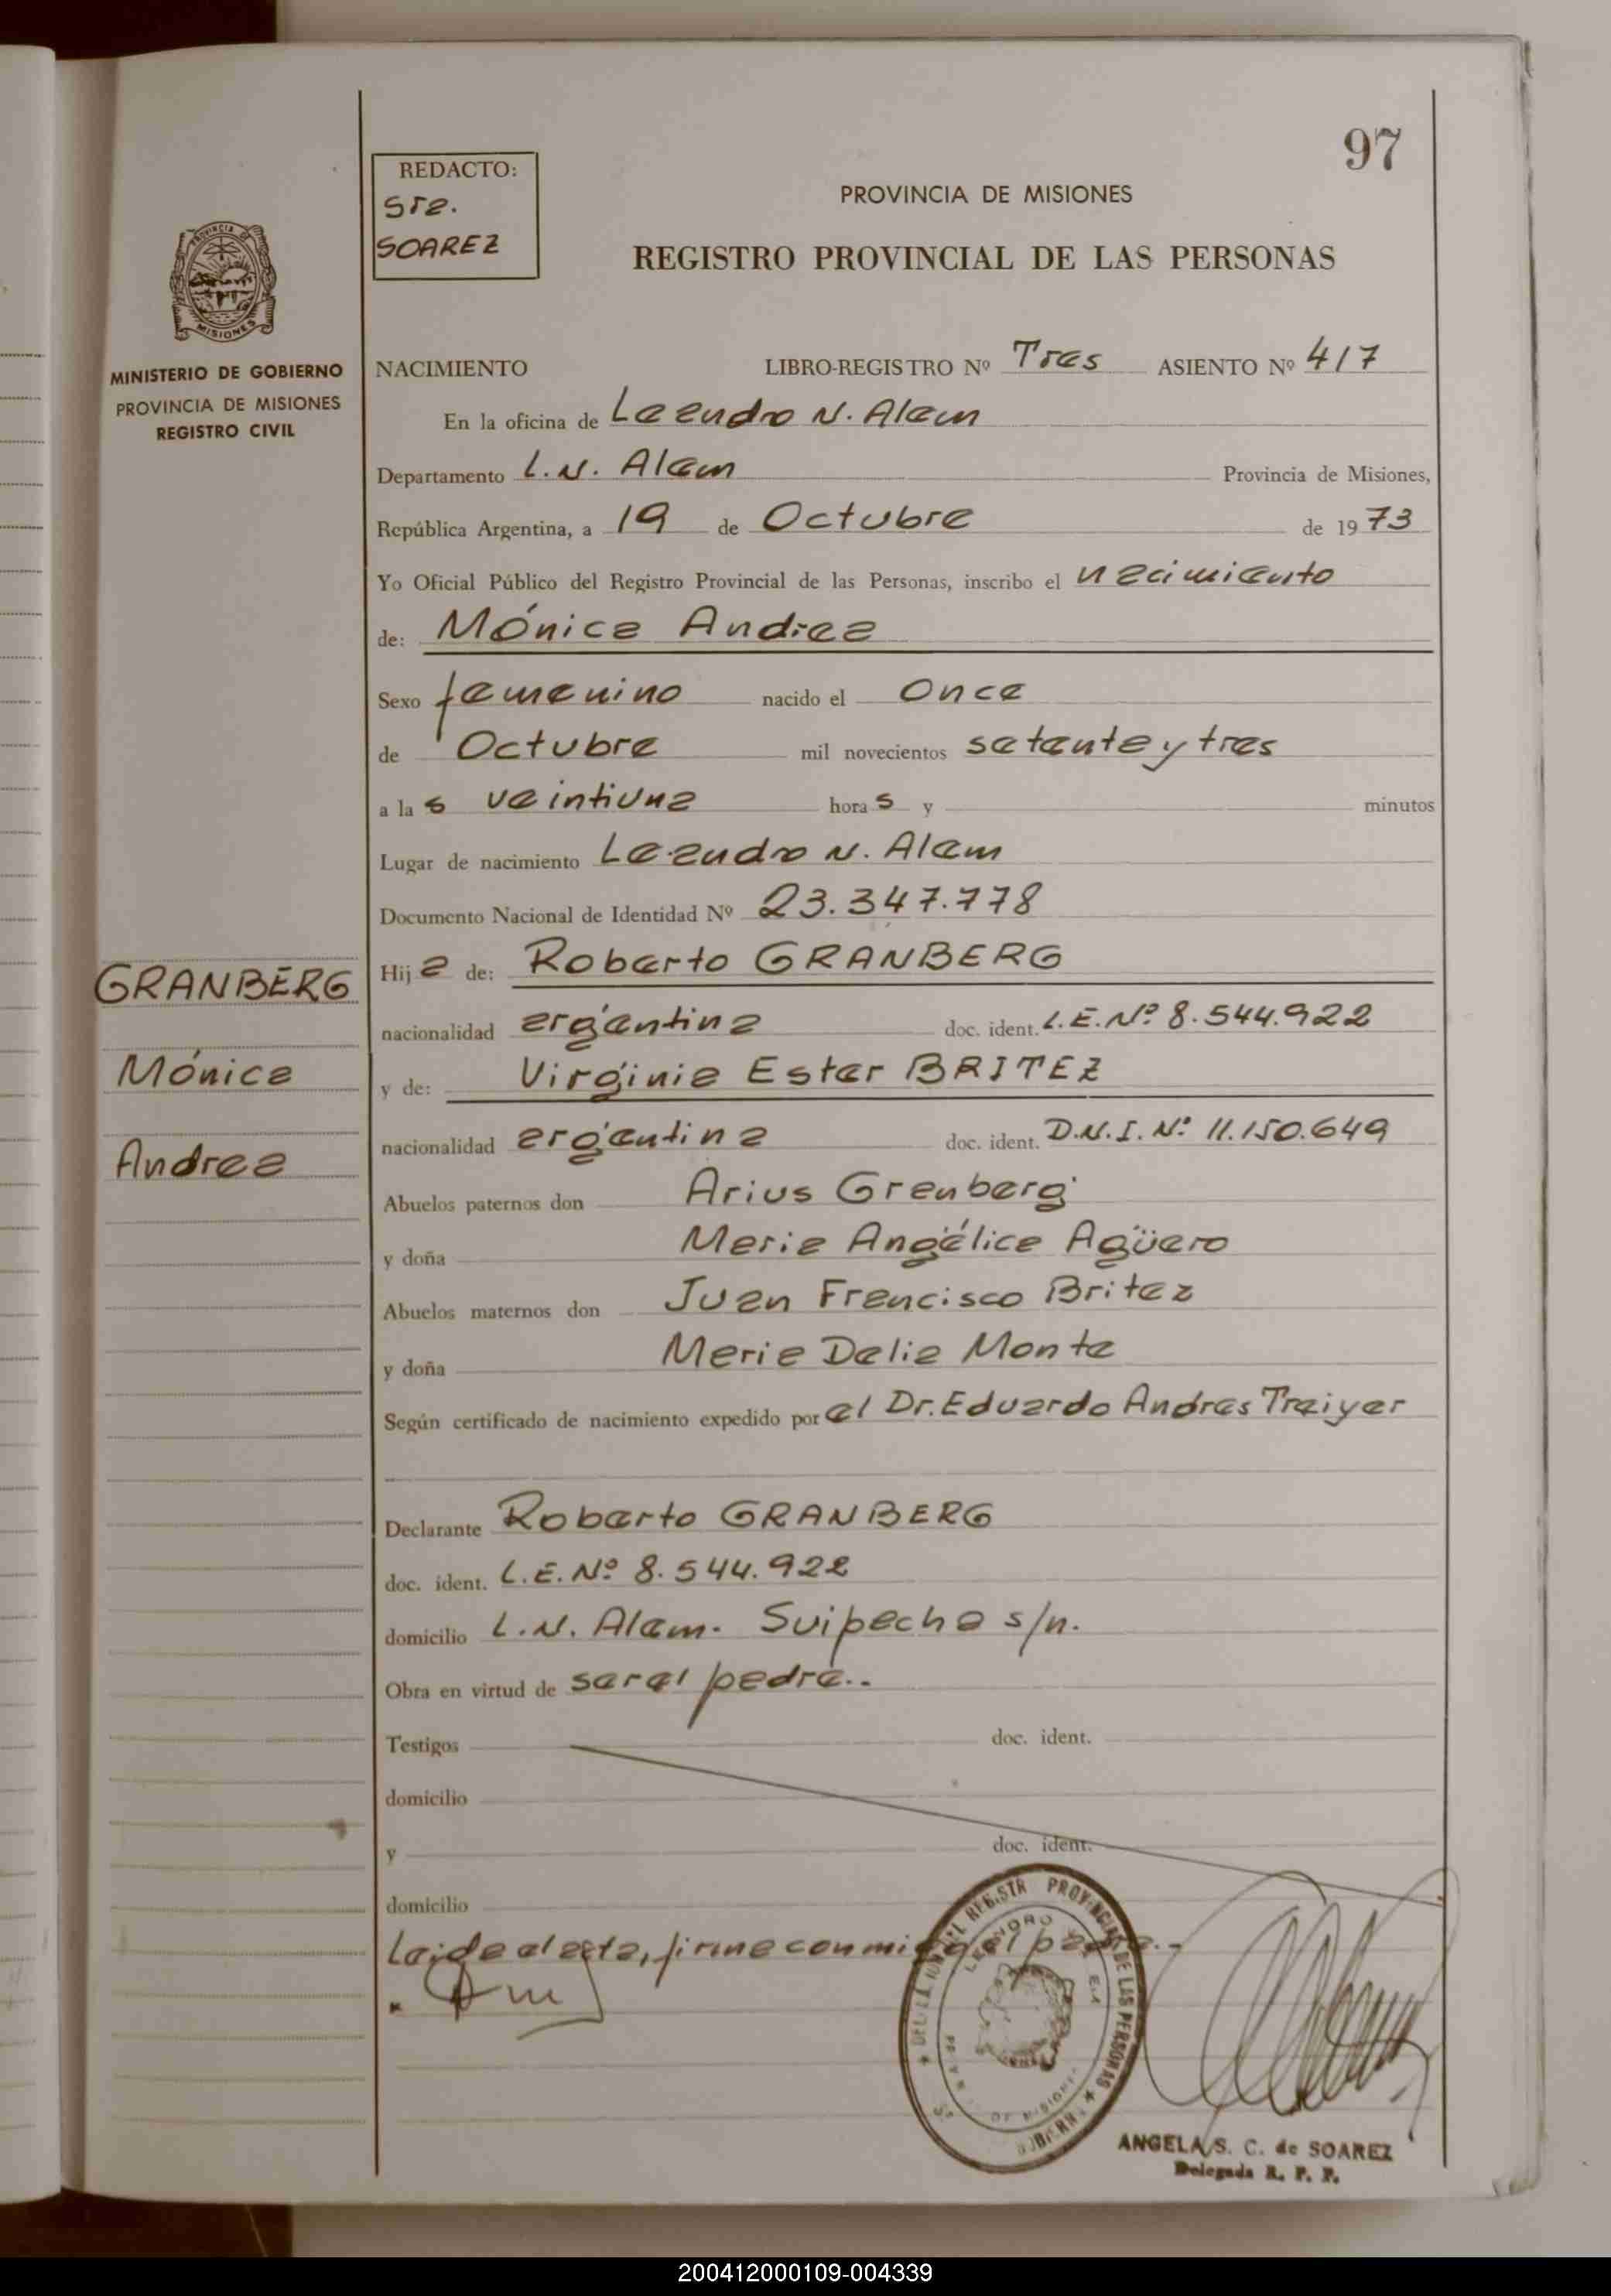 97
REDACTO:
Sra.
SOAREZ
PROVINCIA DE MISIONES
REGISTRO PROVINCIAL DE LAS PERSONAS
MISIONES
MINISTERIO DE GOBIERNO
PROVINCIA DE MISIONES
REGISTRO CIVIL
NACIMIENTO LIBRO-REGISTRO Nº Tres ASIENTO Nº 417
En la oficina de Leandro N. Alem
Departamento L.N. Alem Provincia de Misiones,
República Argentina, a 19 de Octubre de 1973
Yo Oficial Público del Registro Provincial de las Personas, inscribo el nacimiento
de: Mónica Andrea
Sexo femenino nacido el Once
de Octubre mil novecientos setenta y tres
a las veintiuna horas y minutos
Lugar de nacimiento Leandro N. Alem
Documento Nacional de Identidad Nº 23.347.778
Hija de: Roberto GRANBERG
nacionalidad argentina doc. ident. L.E.Nº 8.544.922
y de: Virginia Ester BRITEZ
nacionalidad argentina doc. ident. D.N.I. Nº 11.150.649
GRANBERG
Mónica
Andrea
Abuelos paternos don Arius Granberg
y doña Maria Angélica Agüero
Abuelos maternos don Juan Francisco Britez
y doña Maria Delia Monte
Según certificado de nacimiento expedido por el Dr. Eduardo Andres Traiyer
Declarante Roberto GRANBERG
doc. ident. L.E. Nº 8.544.922
domicilio L.N. Alem. Suipacha s/n.
Obra en virtud de ser el padre..
Testigos doc. ident.
domicilio
y doc. ident.
domicilio
Leida el acta, firma conmigo el padre.-
ANGELA S. C. de SOAREZ
Delegada R. P. P.
200412000109-004339